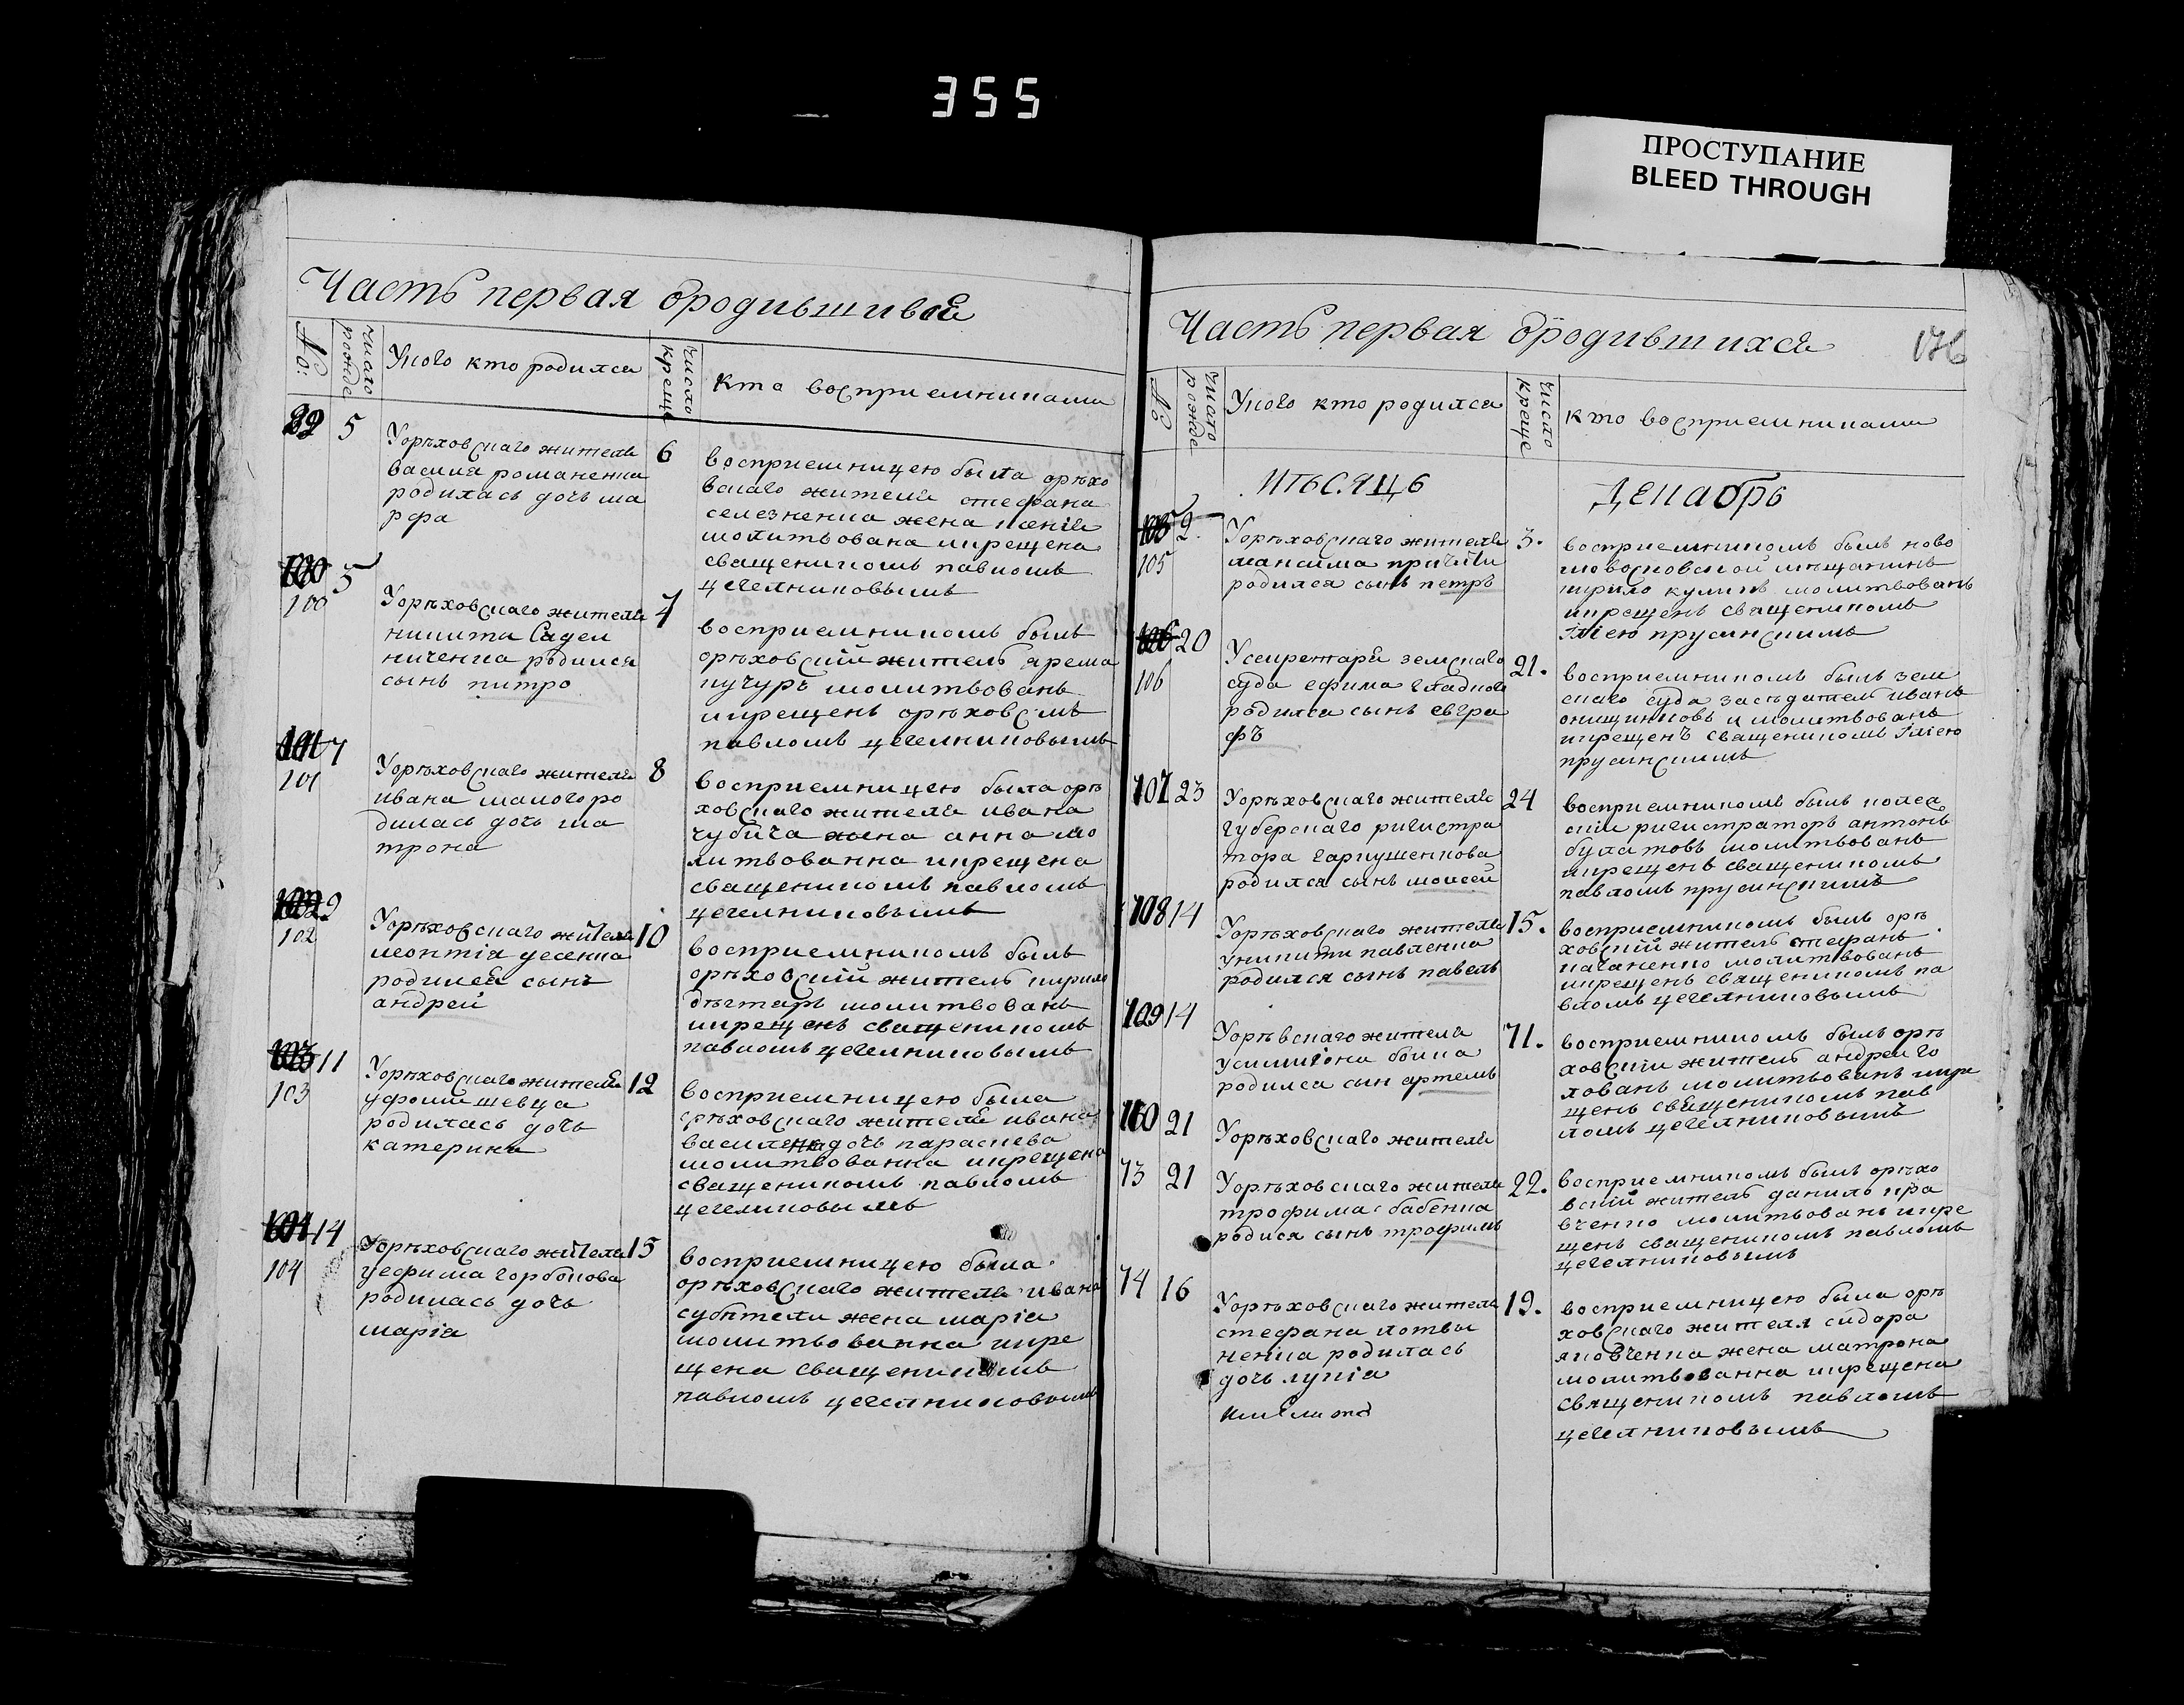 355
ПРОСТУПАНИЕ
BLEED THROUGH
Часть первая ородившися
№:
число рожде
Укого кто родился
число креще
Кто восприемниками
99 5
Уорѣховскаго жителя
василия романенка
родилась дочь ма
рфа
6
восприемницею была орѣхо
вскаго жителя стефана
селезненка жена ксенія
молитвована икрещена
священикомъ павломъ
цегелниковымъ
100 5
100
Уорѣховскаго жителя
никита Садел
ниченка родился
сынъ питро
7
восприемникомъ былъ
орѣховскій житель ярема
кучуръ молитвованъ
икрещенъ орѣховсмъ
павломъ цегелниковымъ
101 7
101
Уорѣховскаго жителя
ивана малого ро
дилась дочь ма
трона
8
восприемницею была орѣ
ховскаго жителя ивана
чубича жена анна мо
литвованна икрещена
священикомъ павломъ
цегелниковымъ
102 9
102
Уорѣховскаго жителя
леонтія десенка
родился сынъ
андрей
10
восприемникомъ былъ
орѣховскій житель кирило
дѣгтярь молитвованъ
икрещенъ священикомъ
павломъ цегелниковымъ
103 11
103
Уорѣховскаго жителя
уфоми шевца
родилась дочь
катерина
12
восприемницею была
орѣховскаго жителя ивана
василенка дочь параскева
молитвованна икрещена
священикомъ павломъ
цегелниковымъ
104 14
104
Уорѣховскаго жителя
уефима горбонова
родилась дочь
марія
15
восприемницею была
орѣховскаго жителя ивана
субтели жена марія
молитвованна икре
щена священикомъ
павломъ цегелниковымъ
Часть первая ородившихся
176
№
число рожде
Укого кто родился
число креще
кто восприемниками
мѣсяцъ
Декабрь
105 2.
105
Уорѣховскаго жителя
максима
родился сынъ петръ
3.
восприемникомъ былъ ново
московской мѣщанинъ
кирило куликъ молитвованъ
икрещенъ священикомъ
Іліею прусинскимъ
106 20
106
Усекретаря земскаго
суда ефима гладкого
родился сынъ евгра
фъ
21.
восприемникомъ былъ зем
скаго суда засѣдатель иванъ
онищинковъ и молитвованъ
икрещенъ священикомъ Іліею
прусинскимъ
107 23
Уорѣховскаго жителя
губерскаго ригистра
тора гаркушенкова
родился сынъ моисей
24
восприемникомъ былъ колеж
скій ригистраторъ антонъ
булатовъ молитвованъ
икрещенъ священикомъ
павломъ прусинскимъ
108 14
Уорѣховскаго жителя
уникити павленка
родился сынъ павелъ
15.
восприемникомъ былъ орѣ
ховскій житель стефанъ
каганенко молитвованъ
икрещенъ священикомъ па
вломъ цегелниковымъ
109 14
Уорѣвскаго жителя
усимиіона бойка
родился сын артемъ
71.
восприемникомъ былъ орѣ
ховскій житель андрей го
лованъ молитвованъ икре
щенъ священикомъ пав
ломъ цегелниковымъ
110 21
Уорѣховскаго жителя
73 21
Уорѣховскаго жителя
трофима бабенка
родися сынъ трофимъ
22.
восприемникомъ былъ орѣхо
вскій житель данило кра
вченко молитвованъ икре
щенъ священикомъ павломъ
цегелниковымъ
74 16
Уорѣховскаго жителя
стефана литви
ненка родилась
дочь лукія
19.
восприемницею была орѣ
ховскаго жителя сидора
яковченка жена матрона
молитвованна икрещена
священикомъ павломъ
цегелниковымъ